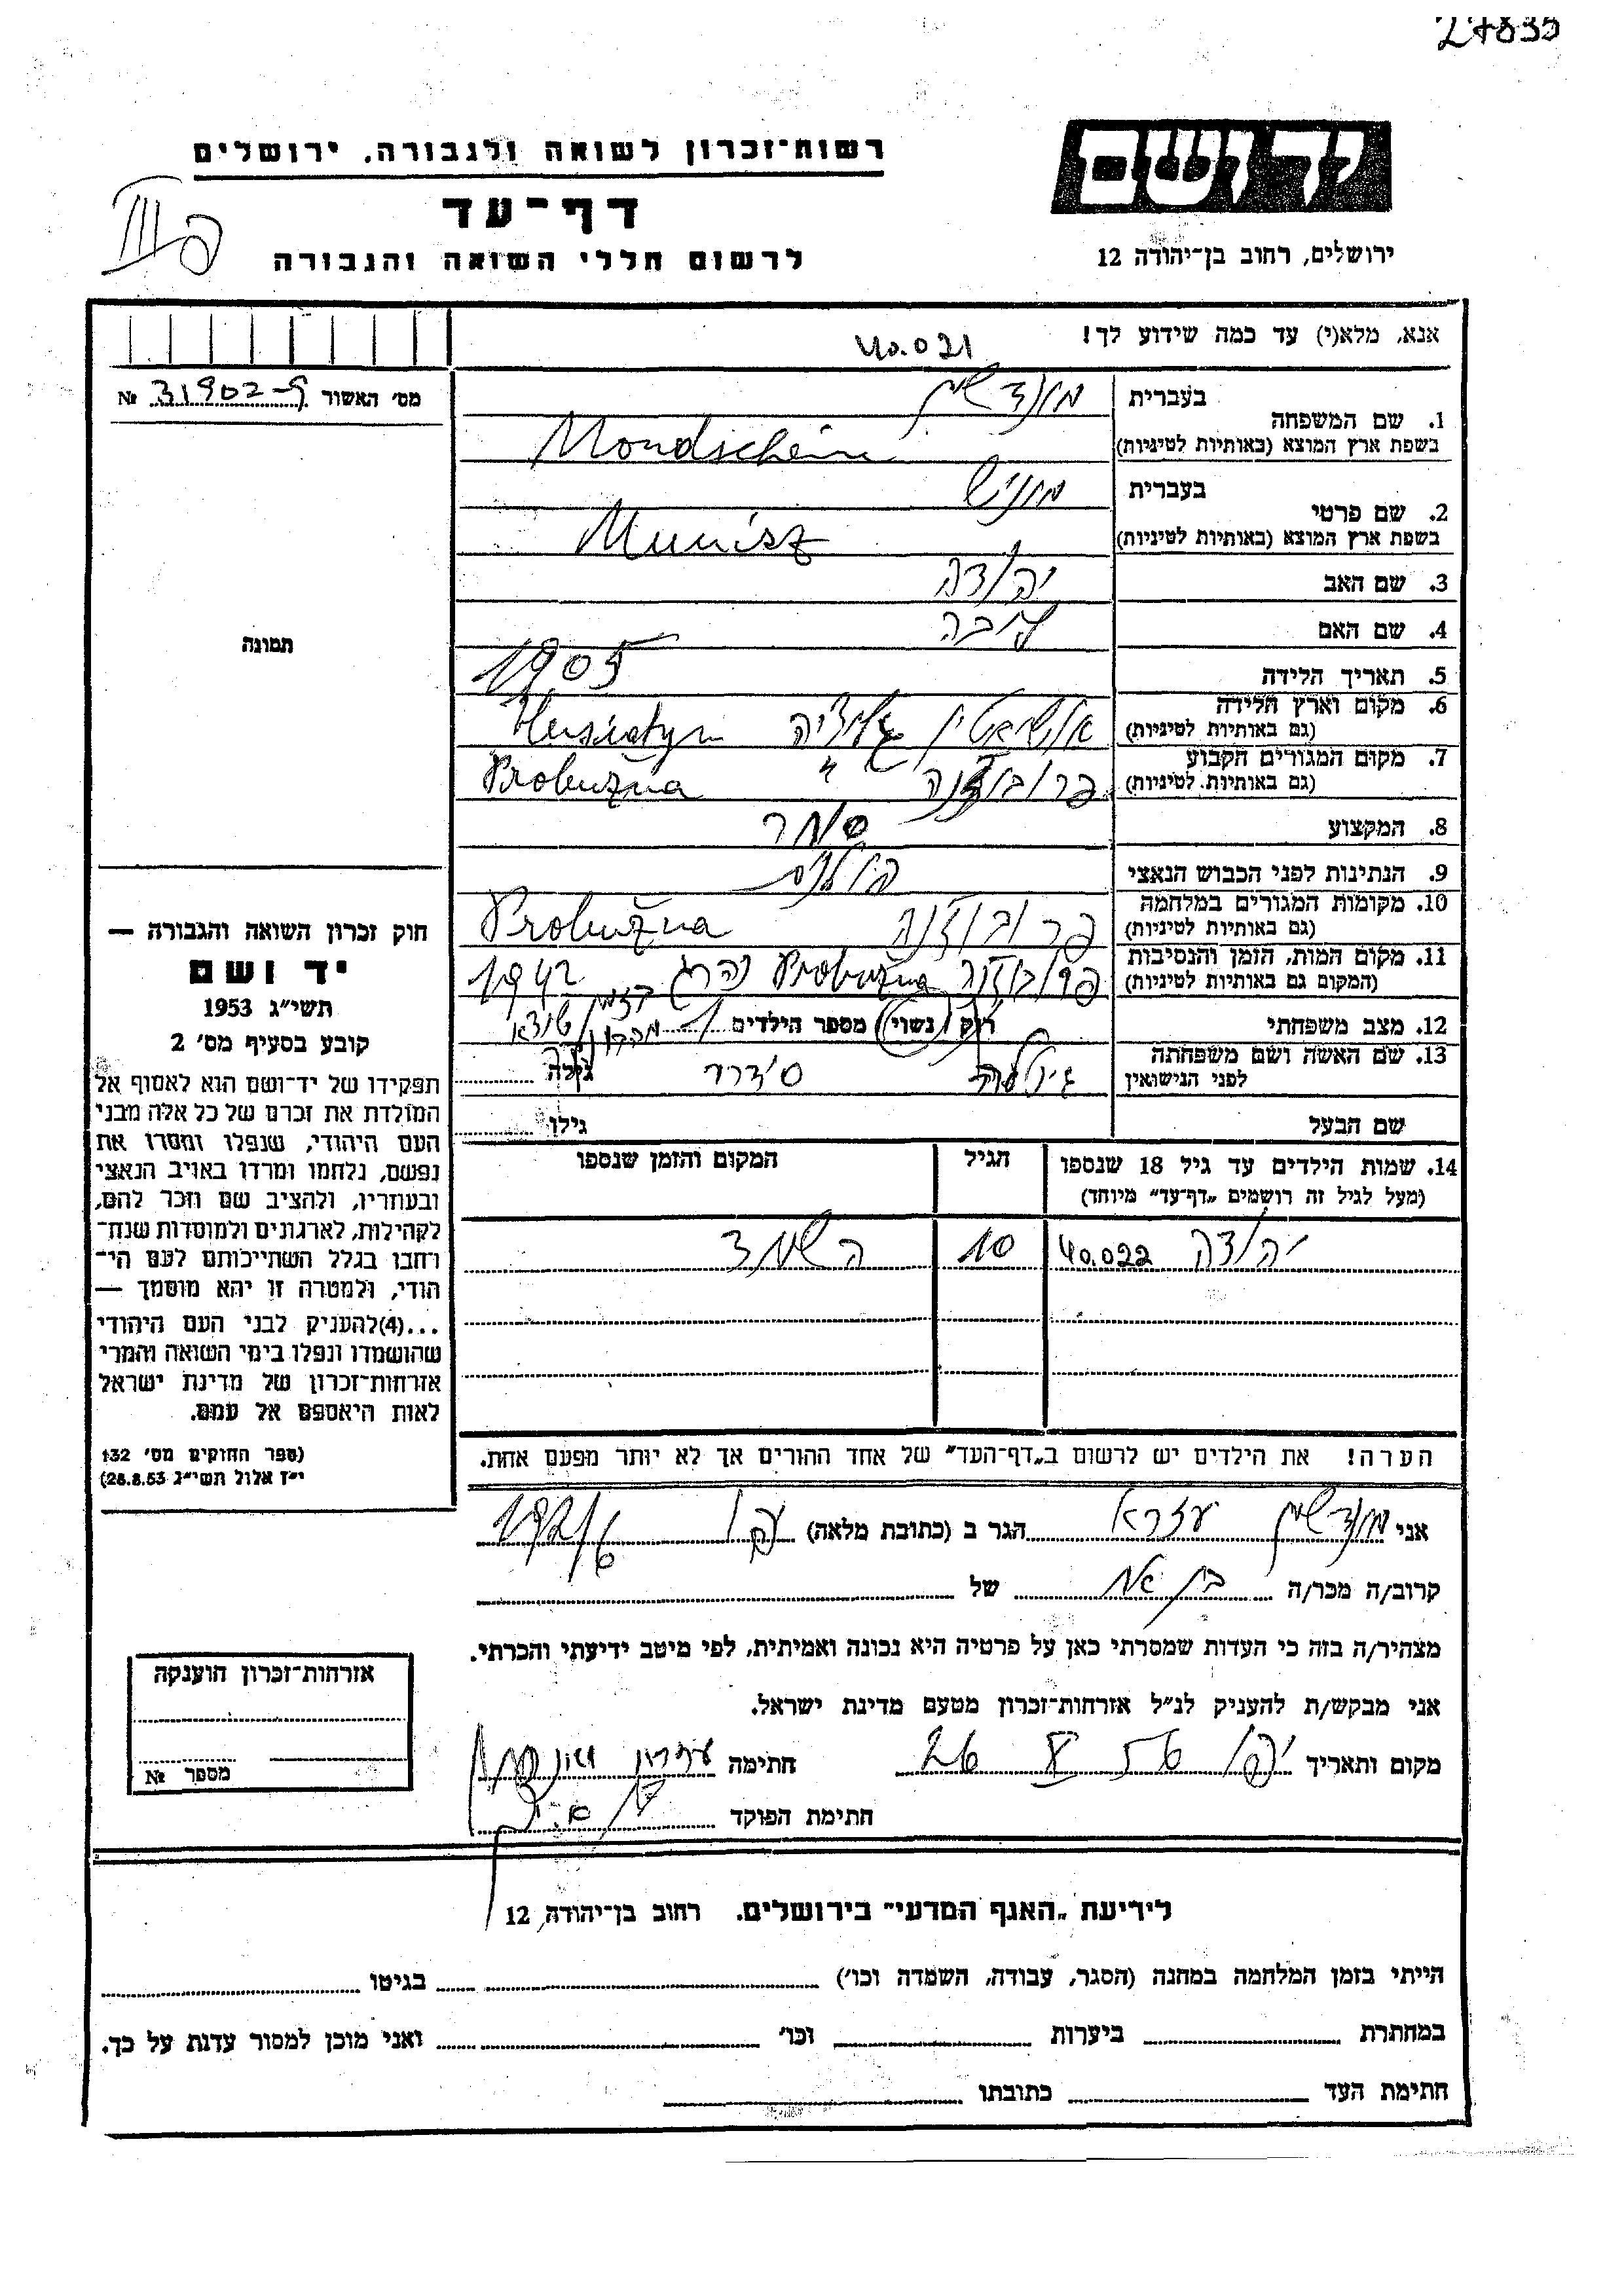 יד ושם
ירושלים, רחוב בן־יהודה 12
רשות־זכרון לשואה ולגבורה, ירושלים
דף־עד
לרשום חללי השואה והגבורה
אנא, מלא(י) עד כמה שידוע לך!
40.021
מס' האשור № 31902-9
1. שם המשפחה
בעברית מונדשיין
בשפת ארץ המוצא (באותיות לטיניות) Mondschein
2. שם פרטי
בעברית מוניש
בשפת ארץ המוצא (באותיות לטיניות) Munisz
3. שם האב יהודה
4. שם האם
5. תאריך הלידה 1905
6. מקום וארץ הלידה
(גם באותיות לטיניות) גליציה Husiatyn
7. מקום המגורים הקבוע
(גם באותיות לטיניות) פרובוז'נה " Probużna
8. המקצוע סוחר
9. הנתינות לפני הכבוש הנאצי פולנית
10. מקומות המגורים במלחמה
(גם באותיות לטיניות) פרובוז'נה Probużna
11. מקום המות, הזמן והנסיבות
(המקום גם באותיות לטיניות) פרובוז'נה Probużna נהרג 1942
12. מצב משפחתי רוק / נשוי / מספר הילדים 1
13. שם האשה ושם משפחתה
לפני הנישואין גילה
שם הבעל גילו
14. שמות הילדים עד גיל 18 שנספו
(מעל לגיל זה רושמים „דף־עד" מיוחד)
הגיל
המקום והזמן שנספו
יהודה 40.022 10 הושמד
הערה! את הילדים יש לרשום ב„דף־העד" של אחד ההורים אך לא יותר מפעם אחת.
אני מונדשיין עזרא הגר ב (כתובת מלאה) עכו
קרוב/ה מכר/ה בן אח של
מצהיר/ה בזה כי העדות שמסרתי כאן על פרטיה היא נכונה ואמיתית, לפי מיטב ידיעתי והכרתי.
אני מבקש/ת להעניק לנ"ל אזרחות־זכרון מטעם מדינת ישראל.
מקום ותאריך חתימה
חתימת הפוקד
תמונה
חוק זכרון השואה והגבורה —
יד ושם
תשי"ג 1953
קובע בסעיף מס' 2
תפקידו של יד־ושם הוא לאסוף אל
המולדת את זכרם של כל אלה מבני
העם היהודי, שנפלו ומסרו את
נפשם, נלחמו ומרדו באויב הנאצי
ובעוזריו, ולהציב שם וזכר להם,
לקהילות, לארגונים ולמוסדות שנח־
רחבו בגלל השתייכותם לעם הי־
הודי, ולמטרה זו יהא מוסמך —
...(4)להעניק לבני העם היהודי
שהושמדו ונפלו בימי השואה והמרי
אזרחות־זכרון של מדינת ישראל
לאות היאספם אל עמם.
(ספר החוקים מס' 132
י"ז אלול תשי"ג 28.8.53)
אזרחות־זכרון הוענקה
מספר №
לידיעת „האגף המדעי" בירושלים. רחוב בן־יהודה 12
הייתי בזמן המלחמה במחנה (הסגר, עבודה, השמדה וכו') בגיטו
במחתרת ביערות וכו' ואני מוכן למסור עדות על כך.
חתימת העד כתובתו